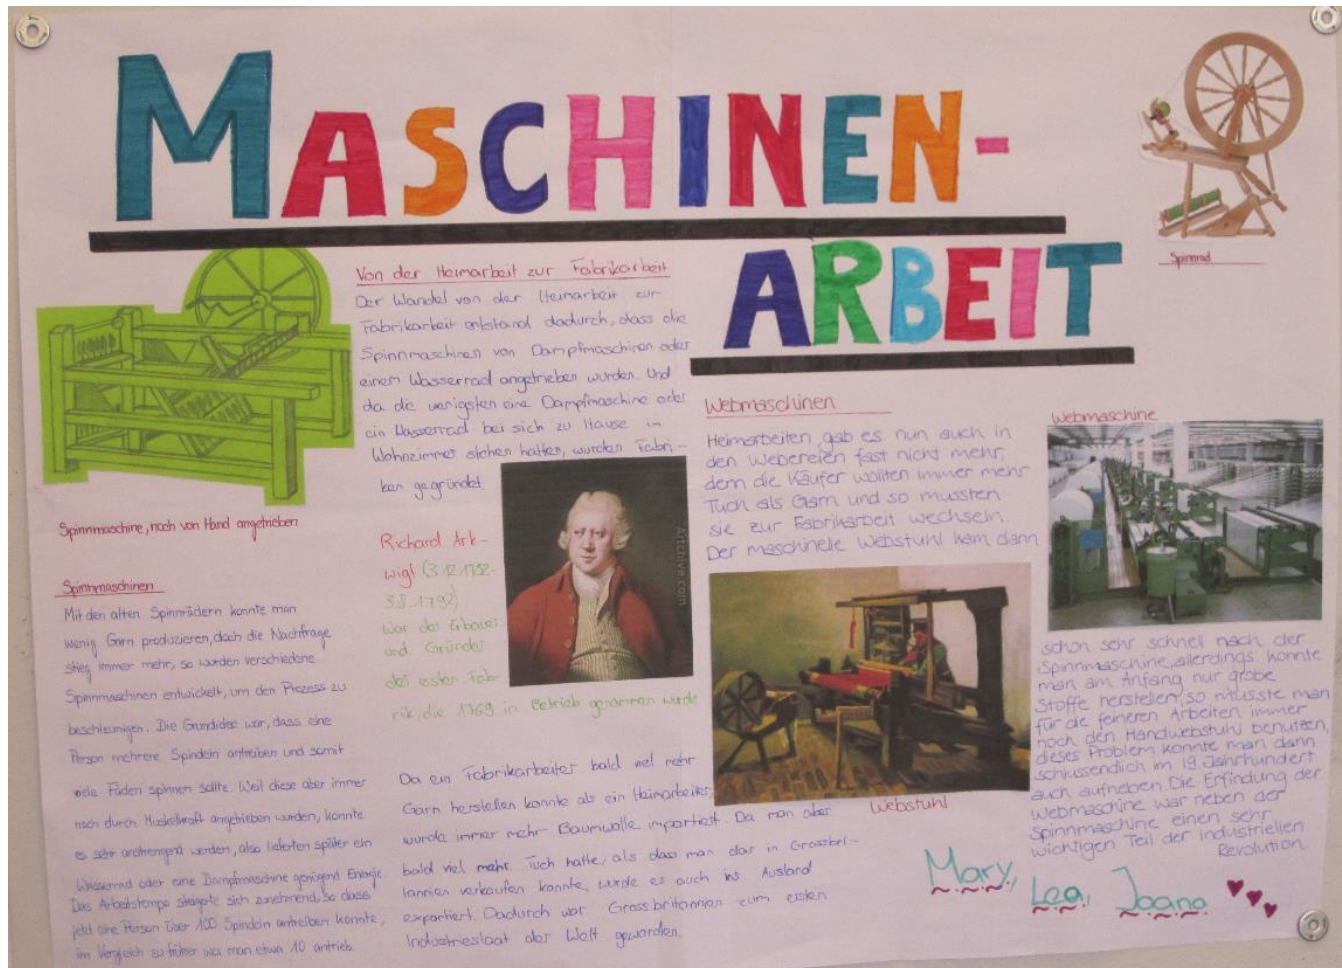 MASCHINEN-
ARBEIT
Spinnrad
Spinnmaschine, noch von Hand angetrieben
Spinnmaschinen
Mit den alten Spinnrädern konnte man
wenig Garn produzieren, doch die Nachfrage
stieg immer mehr, so wurden verschiedene
Spinnmaschinen entwickelt, um den Prozess zu
beschleunigen. Die Grundidee war, dass eine
Person mehrere Spindeln antreiben und somit
viele Fäden spinnen sollte. Weil diese aber immer
noch durch Muskelkraft angetrieben wurden, konnte
es sehr anstrengend werden, also lieferten später ein
Wasserrad oder eine Dampfmaschine genügend Energie.
Das Arbeitstempo steigerte sich zunehmend, so dass
jetzt eine Person über 100 Spindeln antreiben konnte,
im Vergleich zu früher wo man etwa 10 antrieb.
Von der Heimarbeit zur Fabrikarbeit
Der Wandel von der Heimarbeit zur
Fabrikarbeit entstand dadurch, dass die
Spinnmaschinen von Dampfmaschinen oder
einem Wasserrad angetrieben wurden. Und
da die wenigsten eine Dampfmaschine oder
ein Wasserrad bei sich zu Hause im
Wohnzimmer stehen hatten, wurden Fabri-
ken gegründet.
Richard Ark-
wigt (3.12.1732-
3.8.1792)
war der Erbauer
und Gründer
der ersten Fab-
rik, die 1769 in Betrieb genommen wurde
Artchive.com
Da ein Fabrikarbeiter bald viel mehr
Garn herstellen konnte als ein Heimarbeiter,
wurde immer mehr Baumwolle importiert. Da man aber
bald viel mehr Tuch hatte, als dass man das in Grossbri-
tannien verkaufen konnte, wurde es auch ins Ausland
exportiert. Dadurch war Grossbritannien zum ersten
Industriestaat der Welt geworden.
Webmaschinen
Heimarbeiten gab es nun auch in
den Webereien fast nicht mehr,
denn die Käufer wollten immer mehr
Tuch als Garn und so mussten
sie zur Fabrikarbeit wechseln.
Der maschinelle Webstuhl kam dann
Webstuhl
Webmaschine
schon sehr schnell nach der
Spinnmaschine, allerdings konnte
man am Anfang nur grobe
Stoffe herstellen, so musste man
für die feineren Arbeiten immer
noch den Handwebstuhl benutzen,
dieses Problem konnte man dann
schlussendlich im 19. Jahrhundert
auch aufheben. Die Erfindung der
Webmaschine war neben der
Spinnmaschine einen sehr
wichtigen Teil der industriellen
Revolution.
Mary, Lea, Joana